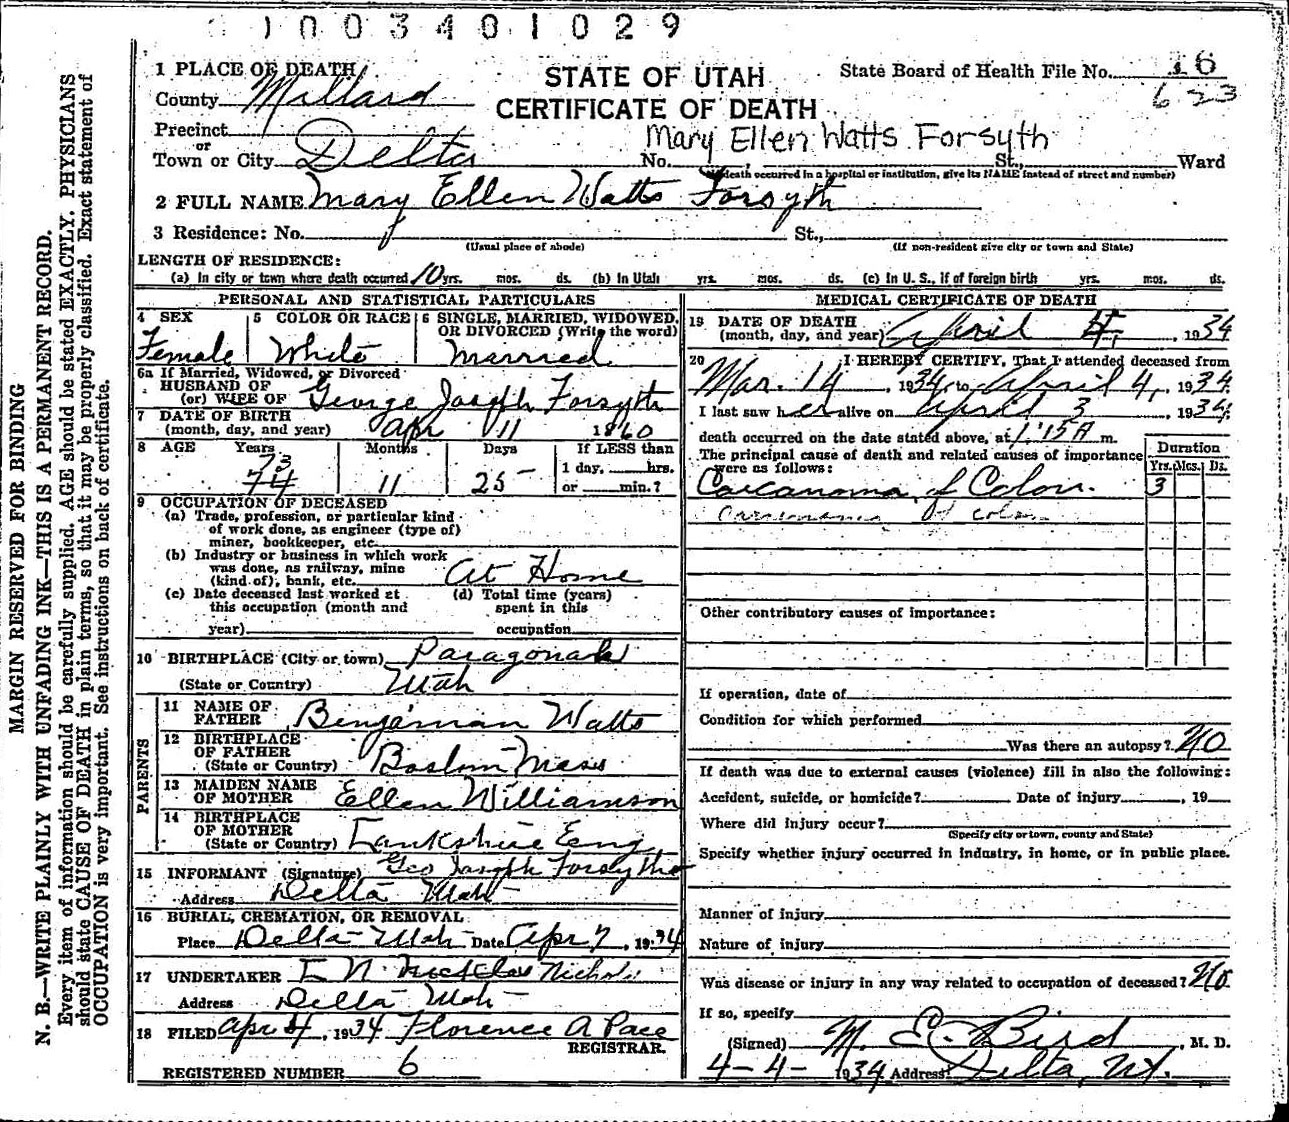 1003401029
1 PLACE OF DEATH
STATE OF UTAH
State Board of Health File No. 16
County Millard
CERTIFICATE OF DEATH
623
Precinct
or
Mary Ellen Watts Forsyth
Town or City Delta No. , St., Ward
(If death occurred in a hospital or institution, give its NAME instead of street and number)
2 FULL NAME Mary Ellen Watts Forsyth
3 Residence: No. St.,
(Usual place of abode) (If non-resident give city or town and State)
LENGTH OF RESIDENCE:
(a) In city or town where death occurred 10 yrs. mos. ds. (b) In Utah yrs. mos. ds. (c) In U. S., if of foreign birth yrs. mos. ds.
PERSONAL AND STATISTICAL PARTICULARS
4 SEX 5 COLOR OR RACE 6 SINGLE, MARRIED, WIDOWED, OR DIVORCED (Write the word)
Female White Married
6a If Married, Widowed, or Divorced
HUSBAND OF
(or) WIFE OF George Joseph Forsyth
7 DATE OF BIRTH
(month, day, and year) Apr 11 1860
8 AGE Years Months Days If LESS than
73
74 11 25 1 day, hrs.
or min.?
9 OCCUPATION OF DECEASED
(a) Trade, profession, or particular kind
of work done, as engineer (type of)
miner, bookkeeper, etc.
(b) Industry or business in which work
was done, as railway, mine
(kind of), bank, etc. At Home
(c) Date deceased last worked at
this occupation (month and
year)
(d) Total time (years)
spent in this
occupation
10 BIRTHPLACE (City or town) Paragonah
(State or Country) Utah
PARENTS
11 NAME OF
FATHER Benjaman Watts
12 BIRTHPLACE
OF FATHER
(State or Country) Boston Mass
13 MAIDEN NAME
OF MOTHER Ellen Williamson
14 BIRTHPLACE
OF MOTHER
(State or Country) Lankshire Eng
15 INFORMANT (Signature) Geo Joseph Forsythe
Address Delta Utah
16 BURIAL, CREMATION, OR REMOVAL
Place Delta Utah Date Apr 7, 1934
17 UNDERTAKER E N Nichols
Address Delta Utah
18 FILED Apr 4, 1934 Florence A Pace
REGISTRAR.
REGISTERED NUMBER 6
MEDICAL CERTIFICATE OF DEATH
19 DATE OF DEATH
(month, day, and year) April 4, 1934
20 I HEREBY CERTIFY, That I attended deceased from
Mar. 14, 1934, to April 4, 1934.
I last saw her alive on April 3, 1934.
death occurred on the date stated above, at 1:15 A m.
The principal cause of death and related causes of importance
were as follows:
Duration
Yrs. Mos. Ds.
Carcanoma of Colon. 3
Carcinoma of colon
Other contributory causes of importance:
If operation, date of
Condition for which performed
Was there an autopsy? No
If death was due to external causes (violence) fill in also the following:
Accident, suicide, or homicide? Date of injury , 19
Where did injury occur?
(Specify city or town, county and State)
Specify whether injury occurred in industry, in home, or in public place.
Manner of injury
Nature of injury
Was disease or injury in any way related to occupation of deceased? No.
If so, specify
(Signed) M. E. Bird, M. D.
4-4-1934 Address Delta, Ut.
MARGIN RESERVED FOR BINDING
N. B.—WRITE PLAINLY WITH UNFADING INK—THIS IS A PERMANENT RECORD.
Every item of information should be carefully supplied. AGE should be stated EXACTLY. PHYSICIANS
should state CAUSE OF DEATH in plain terms, so that it may be properly classified. Exact statement of
OCCUPATION is very important. See instructions on back of certificate.